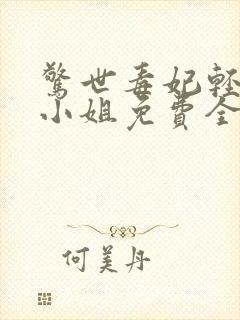 驚世毒妃輕
小姐免費全
何美丹